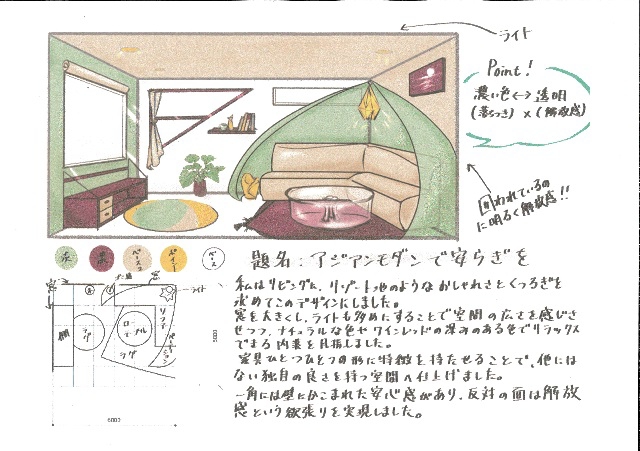 ライト
Point!
濃い色↔透明
(落ちつき)×(解放感)
囲われているの
に明るく解放感!!
題名:アジアンモダンで安らぎを
私はリビングに、リゾート地のようなおしゃれさとくつろぎを
求めてこのデザインにしました。
窓を大きくし、ライトも多めにすることで空間の広さを感じさ
せつつ、ナチュラルな色やワインレッドの深みのある色でリラックス
できる内装を目指しました。
家具ひとつひとつの形に特徴を持たせることで、他には
ない独自の良さを持つ空間へ仕上げました。
一角には壁にかこまれた安心感があり、反対の面は解放
感という欲張りを実現しました。
ライト
棚
ラグ
ローテーブル
ラグ
ソファ
6000